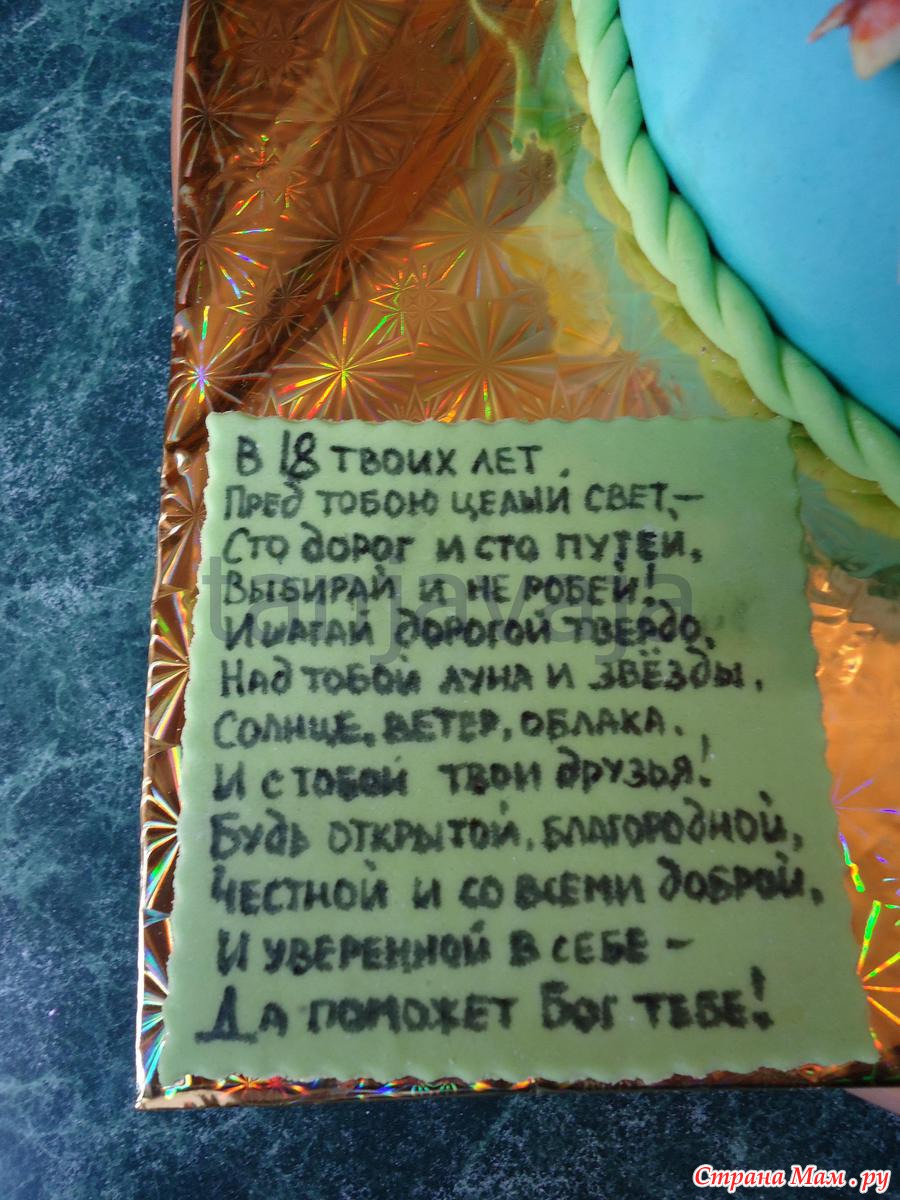 В 18 твоих лет,
Пред тобою целый свет,—
Сто дорог и сто путей,
Выбирай и не робей!
Ишагай дорогой твердо,
Над тобой луна и звёзды,
Солнце, ветер, облака.
И с тобой твои друзья!
Будь открытой, благородной,
Честной и со всеми доброй,
И уверенной в себе —
Да поможет Бог тебе!
tanjavaja
Страна Мам.ру